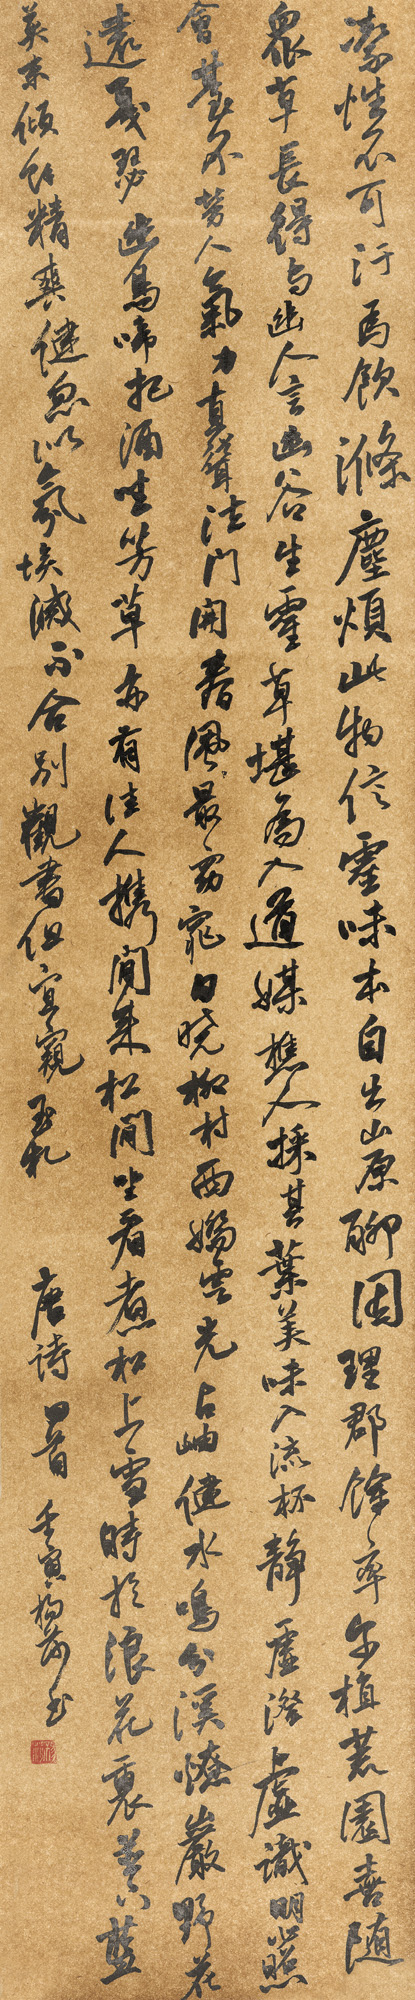 潔性不可汙為飲滌塵煩此物信靈味本自出山原聊因理郡餘率尔植荒園喜随
眾草長得与幽人言幽谷生靈草堪為入道媒樵人採其葉美味入流杯靜慮澄虛識明心照
會臺不勞人氣力直聳法門開春風最窈窕日曉柳村西嬌雲光占岫健水鳴分溪燎巖野花
遠戛瑟幽鳥啼把酒坐芳草亦有佳人攜閒來松間坐看煮松上雪時於浪花裏並下藍
英末傾餘精爽健忽似氛埃滅不合別觀書但宜窺玉札 唐詩四首 壬寅 書